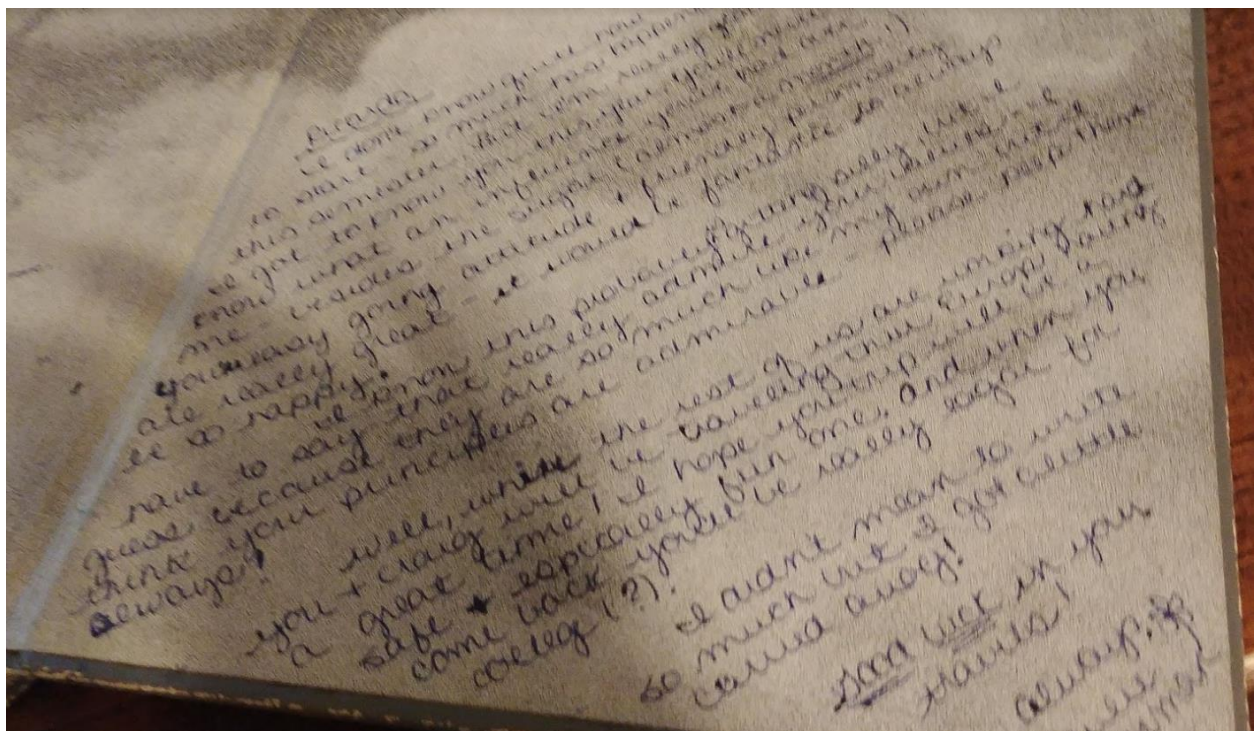 Ricardo,
I don't know quite how
to start so much has happened
this semester, but I'm really
I got to know you this year you'll never
know what an influence you've had on
me - besides the sugar (
your easy going attitude + friendly personality
are really great - it would be fantastic to always
be so happy!
I know this probably very silly but I
have to say that I really admire your
guess because they are so much like my own I
think your principles are admirable - please keep them
always!
Well, while the rest of us are working hard
you + Craig will be traveling thru Europe having
a great time, I hope your trip will be a
safe + especially fun one. And when you
come back you'll be really eager for
colleg (?).
I didn't mean to write
so much but I got a little
carried away!
Good luck in your
travels!
Always,